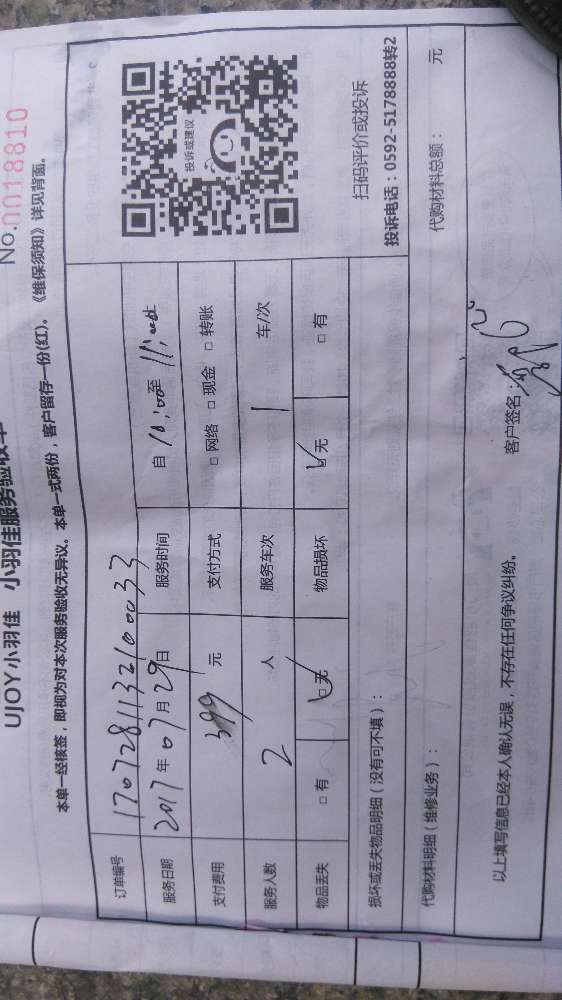 UJOY小羽佳 小羽佳服务验收单
No.0018810
本单一经核签，即视为对本次服务验收无异议。本单一式两份，客户留存一份(红)。《维保须知》详见背面。
订单编号 17072811321000033
服务日期 2017年07月29日 服务时间 自10:00至11:00止
支付费用 399元 支付方式 □网络 □现金 □转账
服务人数 2人 服务车次 1车/次
物品丢失 □有 ☑无 物品损坏 ☑无 □有
投诉或建议
扫码评价或投诉
投诉电话：0592-5178888转2
损坏或丢失物品明细（没有可不填）：
代购材料明细（维修业务）： 代购材料总额： 元
以上填写信息已经本人确认无误，不存在任何争议纠纷。 客户签名：